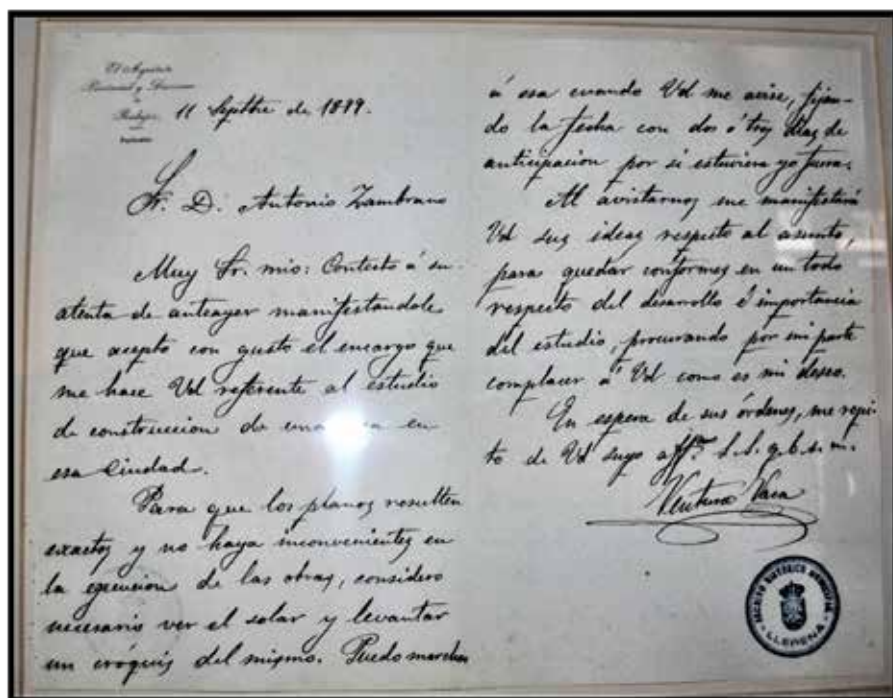 El Arquitecto
Provincial y Diocesano
de
Badajoz
11 Septbre de 1889.
Sr. D. Antonio Zambrano
Muy Sr. mio: Contesto á su
atenta de anteayer manifestandole
que acepto con gusto el encargo que
me hace Vd referente al estudio
de construccion de una en
esa Ciudad.
Para que los planos resulten
exactos y no haya inconvenientes en
la ejecucion de las obras, considero
necesario ver el solar y levantar
un cróquis del mismo. Puedo marchar
á esa cuando Vd me avise, fijan-
do la fecha con dos ó tres dias de
anticipacion por si estuviera yo fuera.
Al avistarnos me manifestará
Vd sus ideas respecto al asunto,
para quedar conformes en un todo
respecto del desarrollo é importancia
del estudio, procurando por mi parte
complacer á Vd como es mi deseo.
En espera de sus órdenes, me repi-
to de Vd suyo affmo S.S. q.b.s.m.
Ventura Vaca
ARCHIVO HISTORICO MUNICIPAL
LLERENA